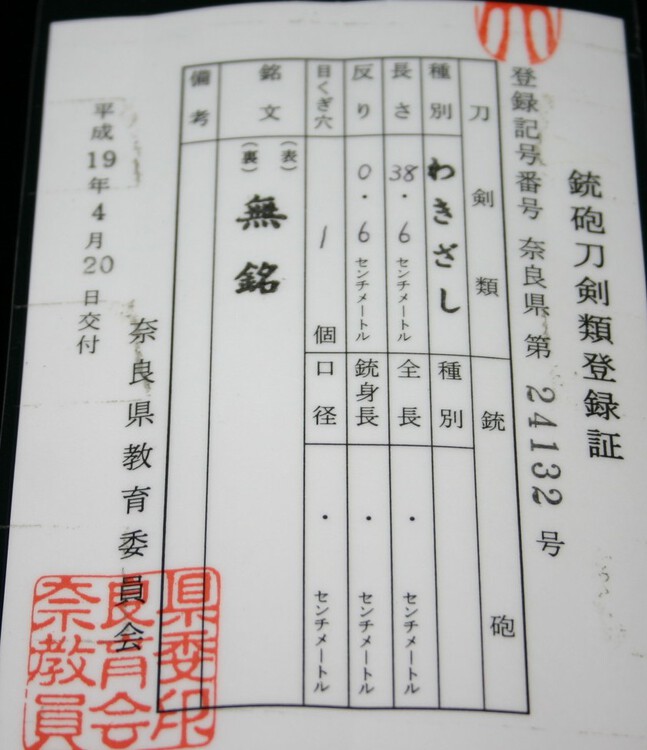 銃砲刀剣類登録証
登録記号番号 奈良県 第 24132 号
刀剣類
種別 わきざし
長さ 38.6センチメートル
反り 0.6センチメートル
目くぎ穴 1個
銘文 (表) (裏) 無銘
備考
銃砲
種別
全長 ・ センチメートル
銃身長 ・ センチメートル
口径 ・ センチメートル
平成19年4月20日交付
奈良県教育委員会
県委印
良育会
奈教員